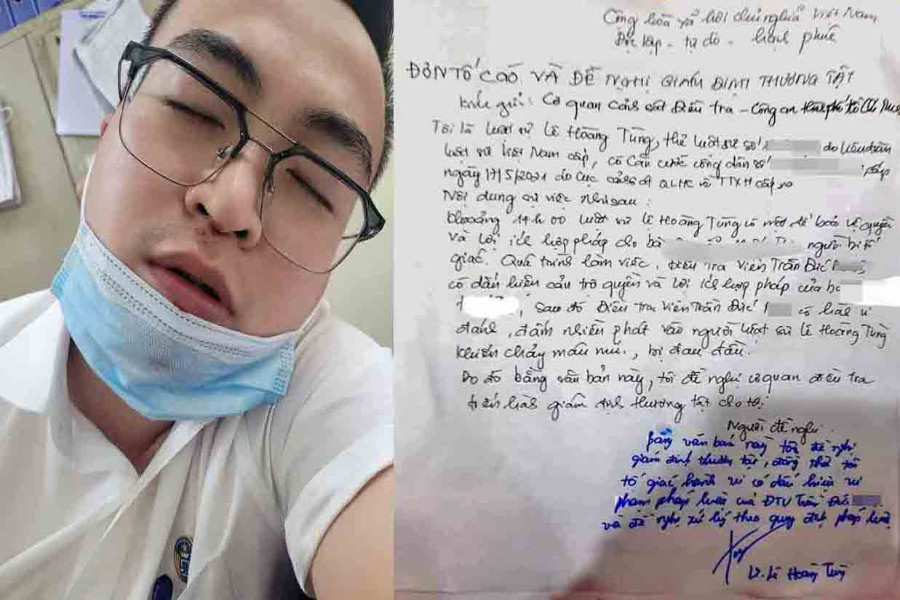 Cộng hòa xã hội chủ nghĩa Việt Nam
Độc lập - tự do - hạnh phúc
ĐƠN TỐ CÁO VÀ ĐỀ NGHỊ GIÁM ĐỊNH THƯƠNG TẬT
Kính gửi: Cơ quan cảnh sát điều tra - Công an thành phố Hồ Chí Minh
Tôi là luật sư Lê Hoàng Tùng, thẻ luật sư số do Liên đoàn
luật sư Việt Nam cấp, có Căn cước công dân số cấp
ngày 17/5/2021 do Cục cảnh sát QLHC về TTXH cấp
Nội dung sự việc như sau:
Khoảng 14h00 luật sư Lê Hoàng Tùng có mặt để bảo vệ quyền
và lợi ích hợp pháp cho bà người bị tố
giác. Quá trình làm việc, Điều tra viên Trần Đức
có dấu hiệu cản trở quyền và lợi ích hợp pháp của
, sau đó Điều tra viên Trần Đức có hành vi
đánh, đấm nhiều phát vào người luật sư Lê Hoàng Tùng
khiến chảy máu mũi, bị đau đầu.
Do đó bằng văn bản này, tôi đề nghị cơ quan điều tra
tiến hành giám định thương tật cho tôi.
Người đề nghị
Bằng văn bản này tôi đề nghị
giám định thương tật, đồng thời tôi
tố giác hành vi có dấu hiệu vi
phạm pháp luật của ĐTV Trần Đức
và đề nghị xử lý theo quy định pháp luật
LS. Lê Hoàng Tùng